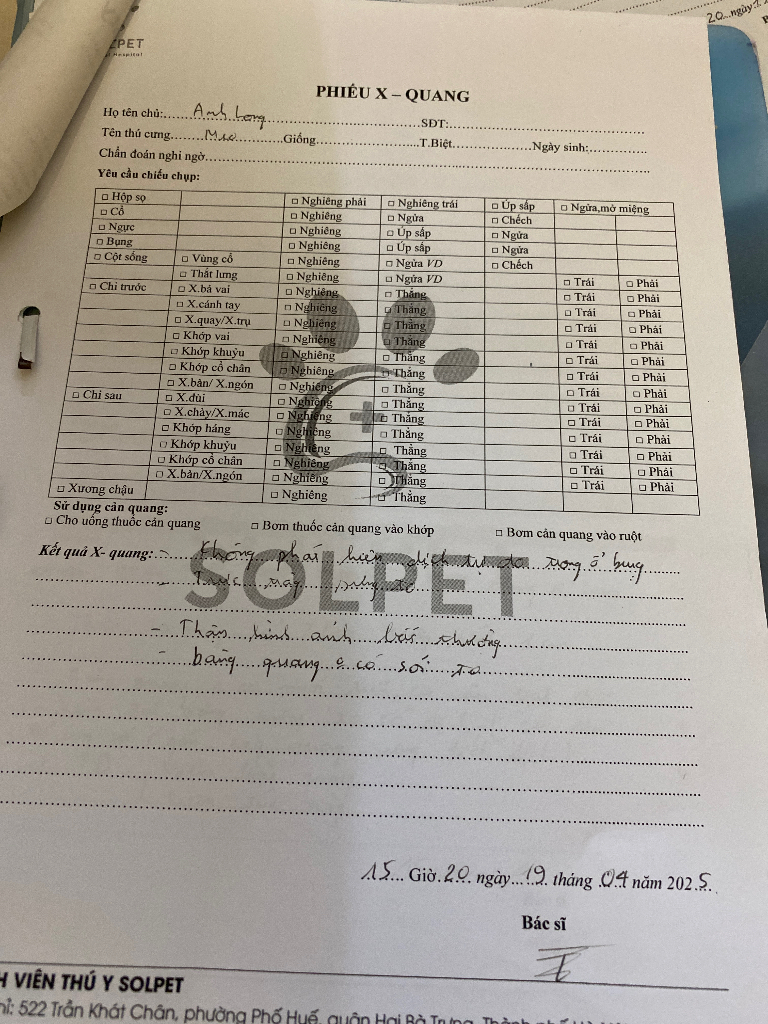 20...ngày:1
PET
PHIẾU X – QUANG
Họ tên chủ: Anh Long SĐT:
Tên thú cưng Meo Giống T.Biệt Ngày sinh:
Chẩn đoán nghi ngờ
Yêu cầu chiếu chụp:
□ Hộp sọ □ Nghiêng phải □ Nghiêng trái □ Úp sấp □ Ngửa,mở miệng
□ Cổ □ Nghiêng □ Ngửa □ Chếch
□ Ngực □ Nghiêng □ Úp sấp □ Ngửa
□ Bụng □ Nghiêng □ Úp sấp □ Ngửa
□ Cột sống □ Vùng cổ □ Nghiêng □ Ngửa VD □ Chếch
□ Thắt lưng □ Nghiêng □ Ngửa VD
□ Chi trước □ X.bả vai □ Nghiêng □ Thẳng □ Trái □ Phải
□ X.cánh tay □ Nghiêng □ Thẳng □ Trái □ Phải
□ X.quay/X.trụ □ Nghiêng □ Thẳng □ Trái □ Phải
□ Khớp vai □ Nghiêng □ Thẳng □ Trái □ Phải
□ Khớp khuỷu □ Nghiêng □ Thẳng □ Trái □ Phải
□ Khớp cổ chân □ Nghiêng □ Thẳng □ Trái □ Phải
□ X.bàn/ X.ngón □ Nghiêng □ Thẳng □ Trái □ Phải
□ Chi sau □ X.đùi □ Nghiêng □ Thẳng □ Trái □ Phải
□ X.chày/X.mác □ Nghiêng □ Thẳng □ Trái □ Phải
□ Khớp háng □ Nghiêng □ Thẳng □ Trái □ Phải
□ Khớp khuỷu □ Nghiêng □ Thẳng □ Trái □ Phải
□ Khớp cổ chân □ Nghiêng □ Thẳng □ Trái □ Phải
□ X.bàn/X.ngón □ Nghiêng □ Thẳng □ Trái □ Phải
□ Xương chậu □ Nghiêng □ Thẳng
Sử dụng cản quang:
□ Cho uống thuốc cản quang □ Bơm thuốc cản quang vào khớp □ Bơm cản quang vào ruột
Kết quả X- quang: - Không phát hiện dịch tự do trong ổ bụng
SOLPET
- Thận hình ảnh bất thường
- bàng quang có sỏi
15 Giờ 20 ngày 19 tháng 04 năm 2025
Bác sĩ
H VIÊN THÚ Y SOLPET
hỉ: 522 Trần Khát Chân, phường Phố Huế, quận Hai Bà Trưng,